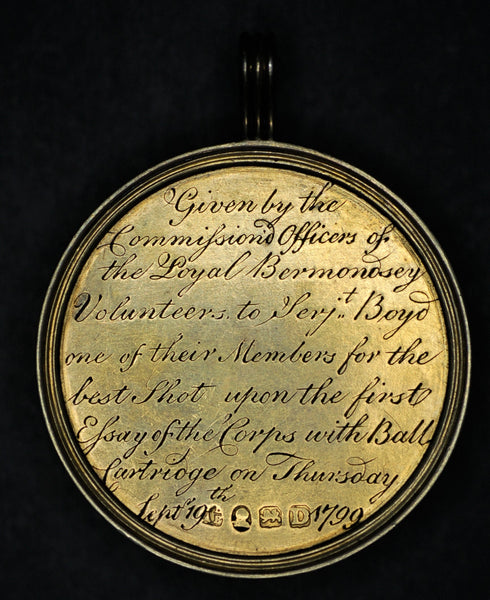 Given by the
Commiſsiond Officers of
the Loyal Bermondsey
Volunteers, to Serj.t Boyd
one of their Members for the
best Shot upon the first
Eſsay of the Corps with Ball
Cartridge on Thursday
Sept.r 19th 1799